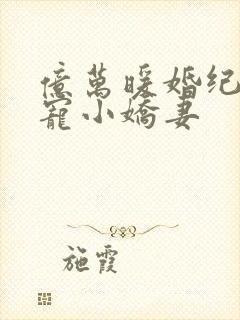 億萬暖婚纪
寵小嬌妻
施霞